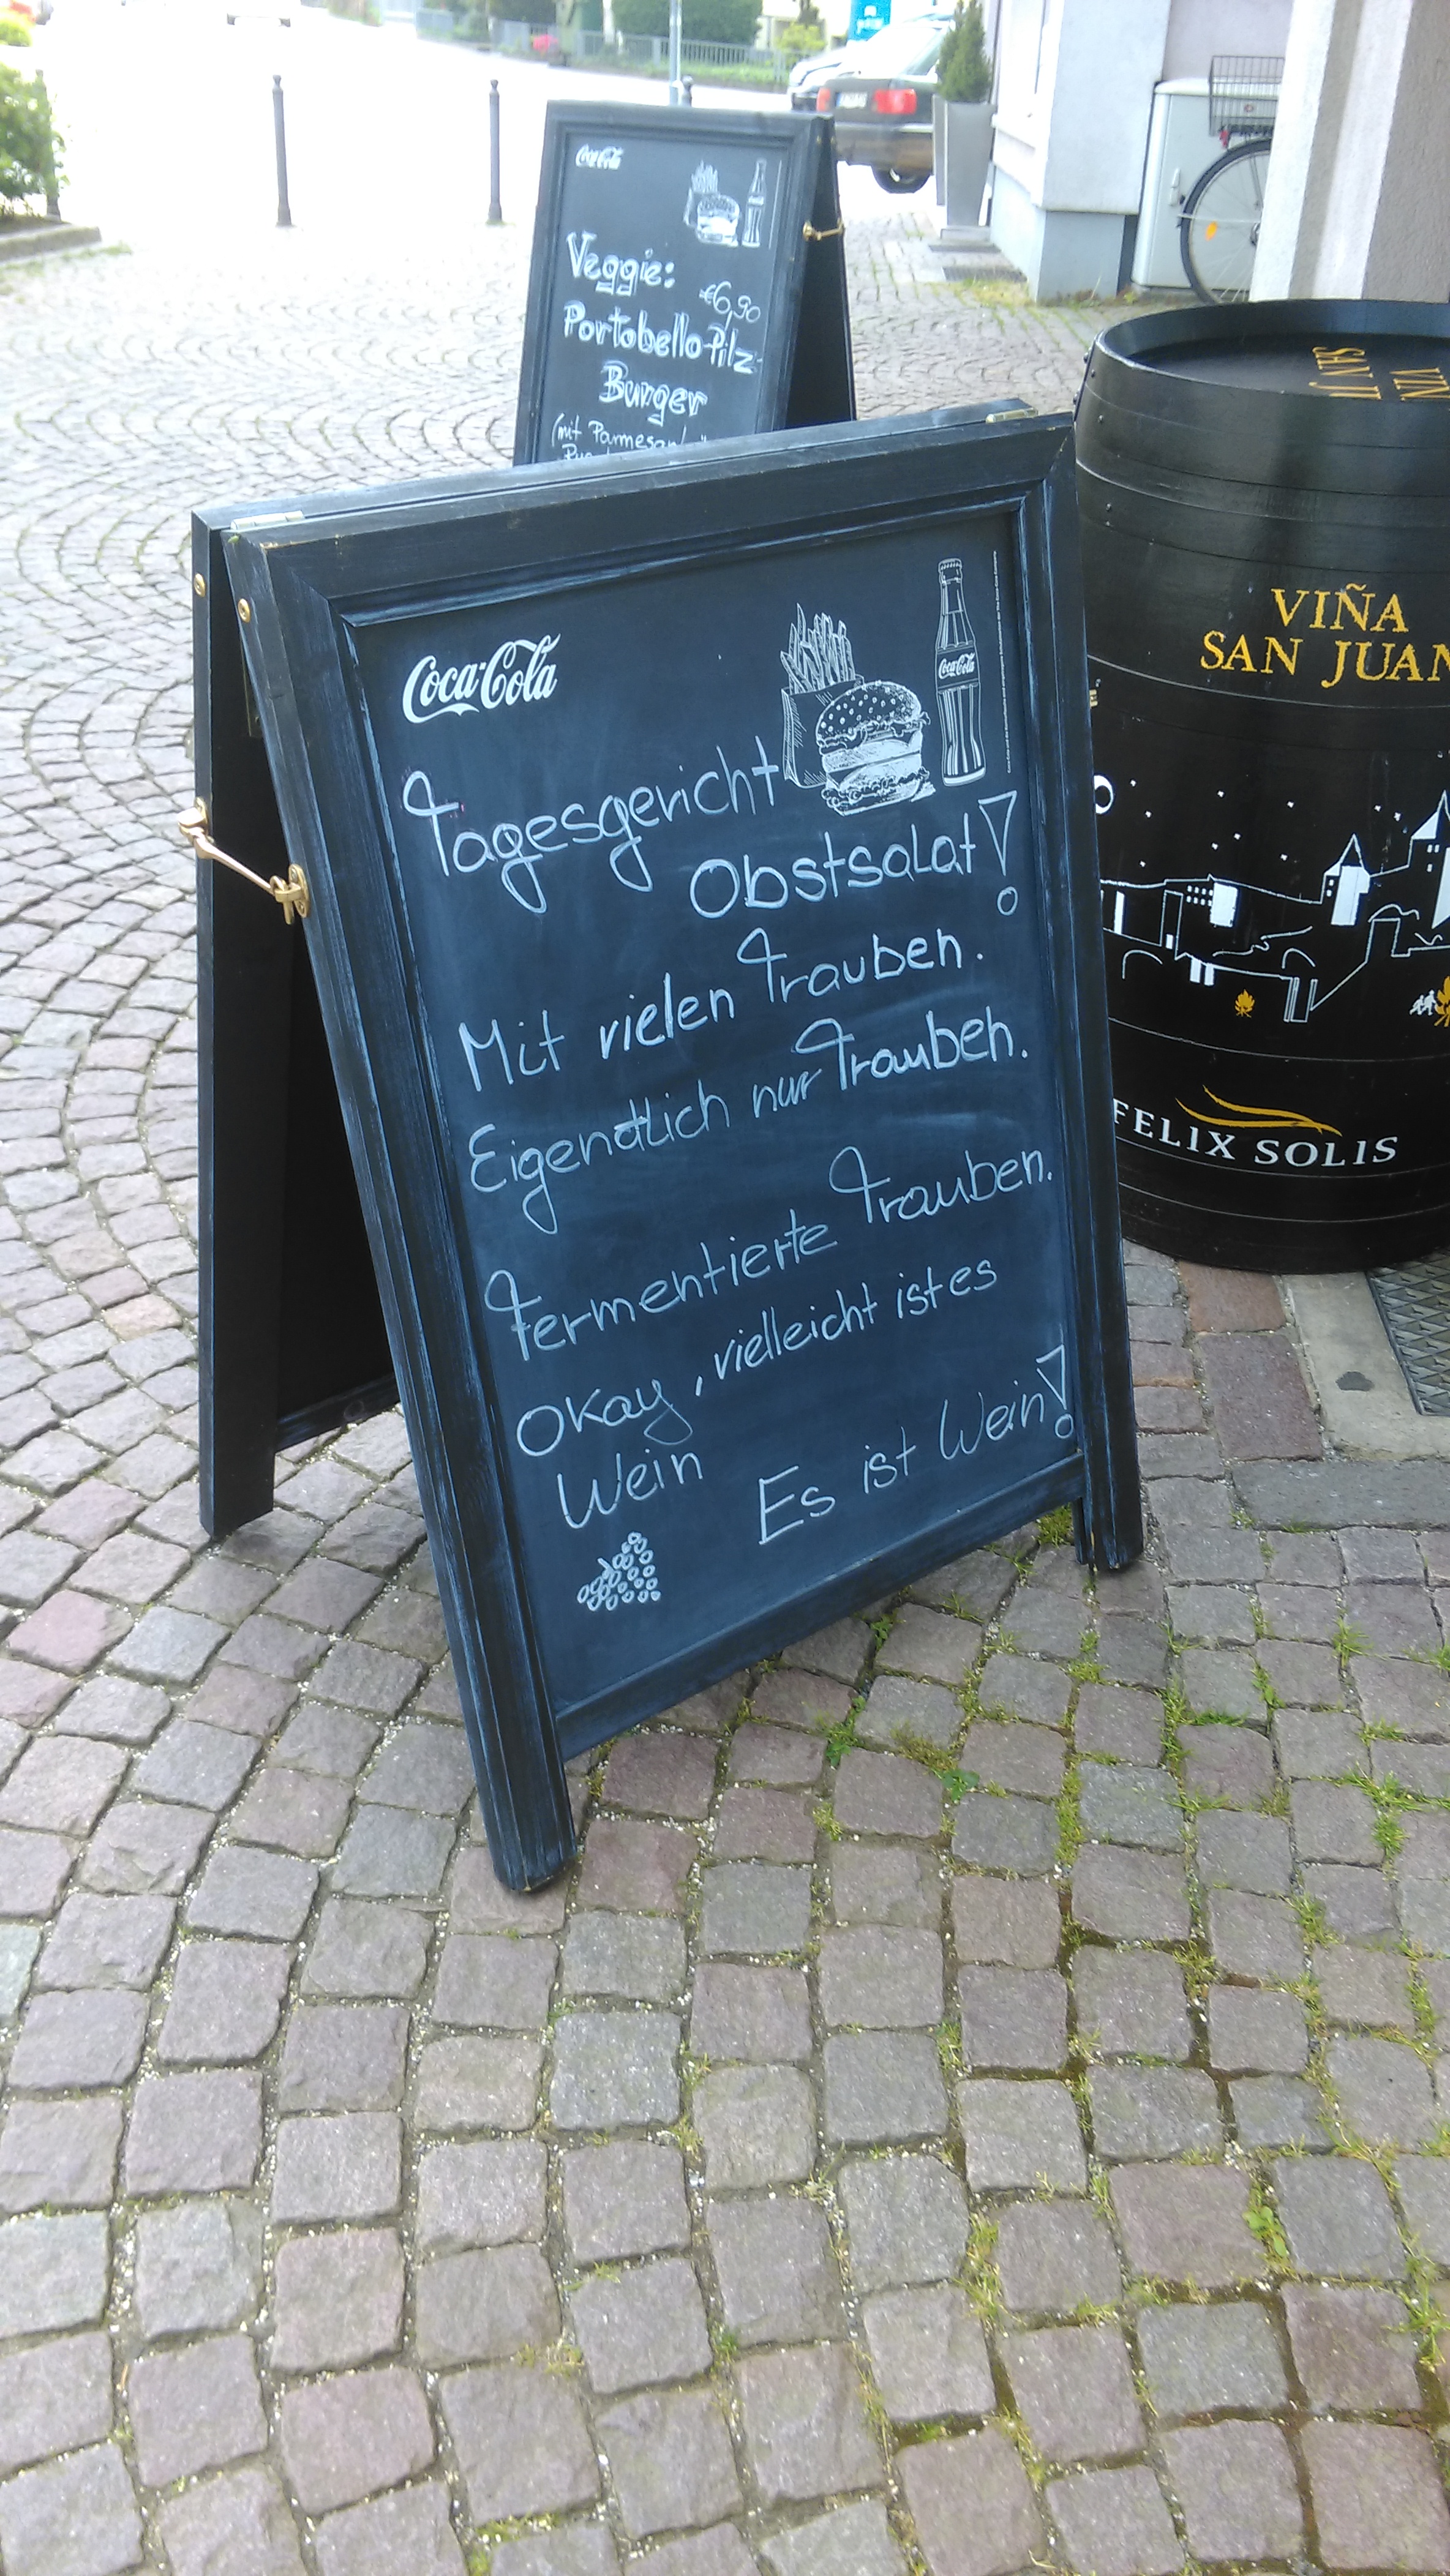 Coca-Cola
Veggie:
€6,90
Portobello-Pilz-
Burger
(mit Parmesan
Coca-Cola
Coca-Cola
Tagesgericht
Obstsalat!
Mit vielen Trauben.
Eigendtlich nur Trauben.
Fermentierte Trauben.
Okay, vielleicht ist es
Wein
Es ist Wein!
VIÑA
SAN JUAN
FELIX SOLIS